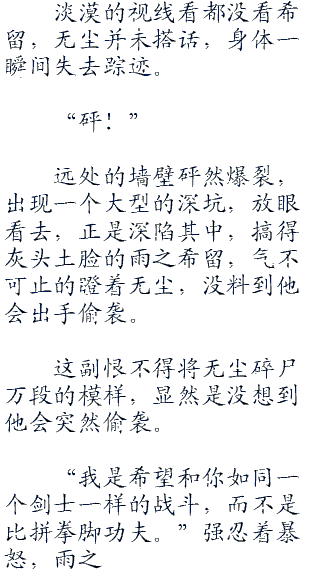 淡漠的视线看都没看希
留，无尘并未搭话，身体一
瞬间失去踪迹。
“砰！”
远处的墙壁砰然爆裂，
出现一个大型的深坑，放眼
看去，正是深陷其中，搞得
灰头土脸的雨之希留，气不
可止的蹬着无尘，没料到他
会出手偷袭。
这副恨不得将无尘碎尸
万段的模样，显然是没想到
他会突然偷袭。
“我是希望和你如同一
个剑士一样的战斗，而不是
比拼拳脚功夫。”强忍着暴
怒，雨之